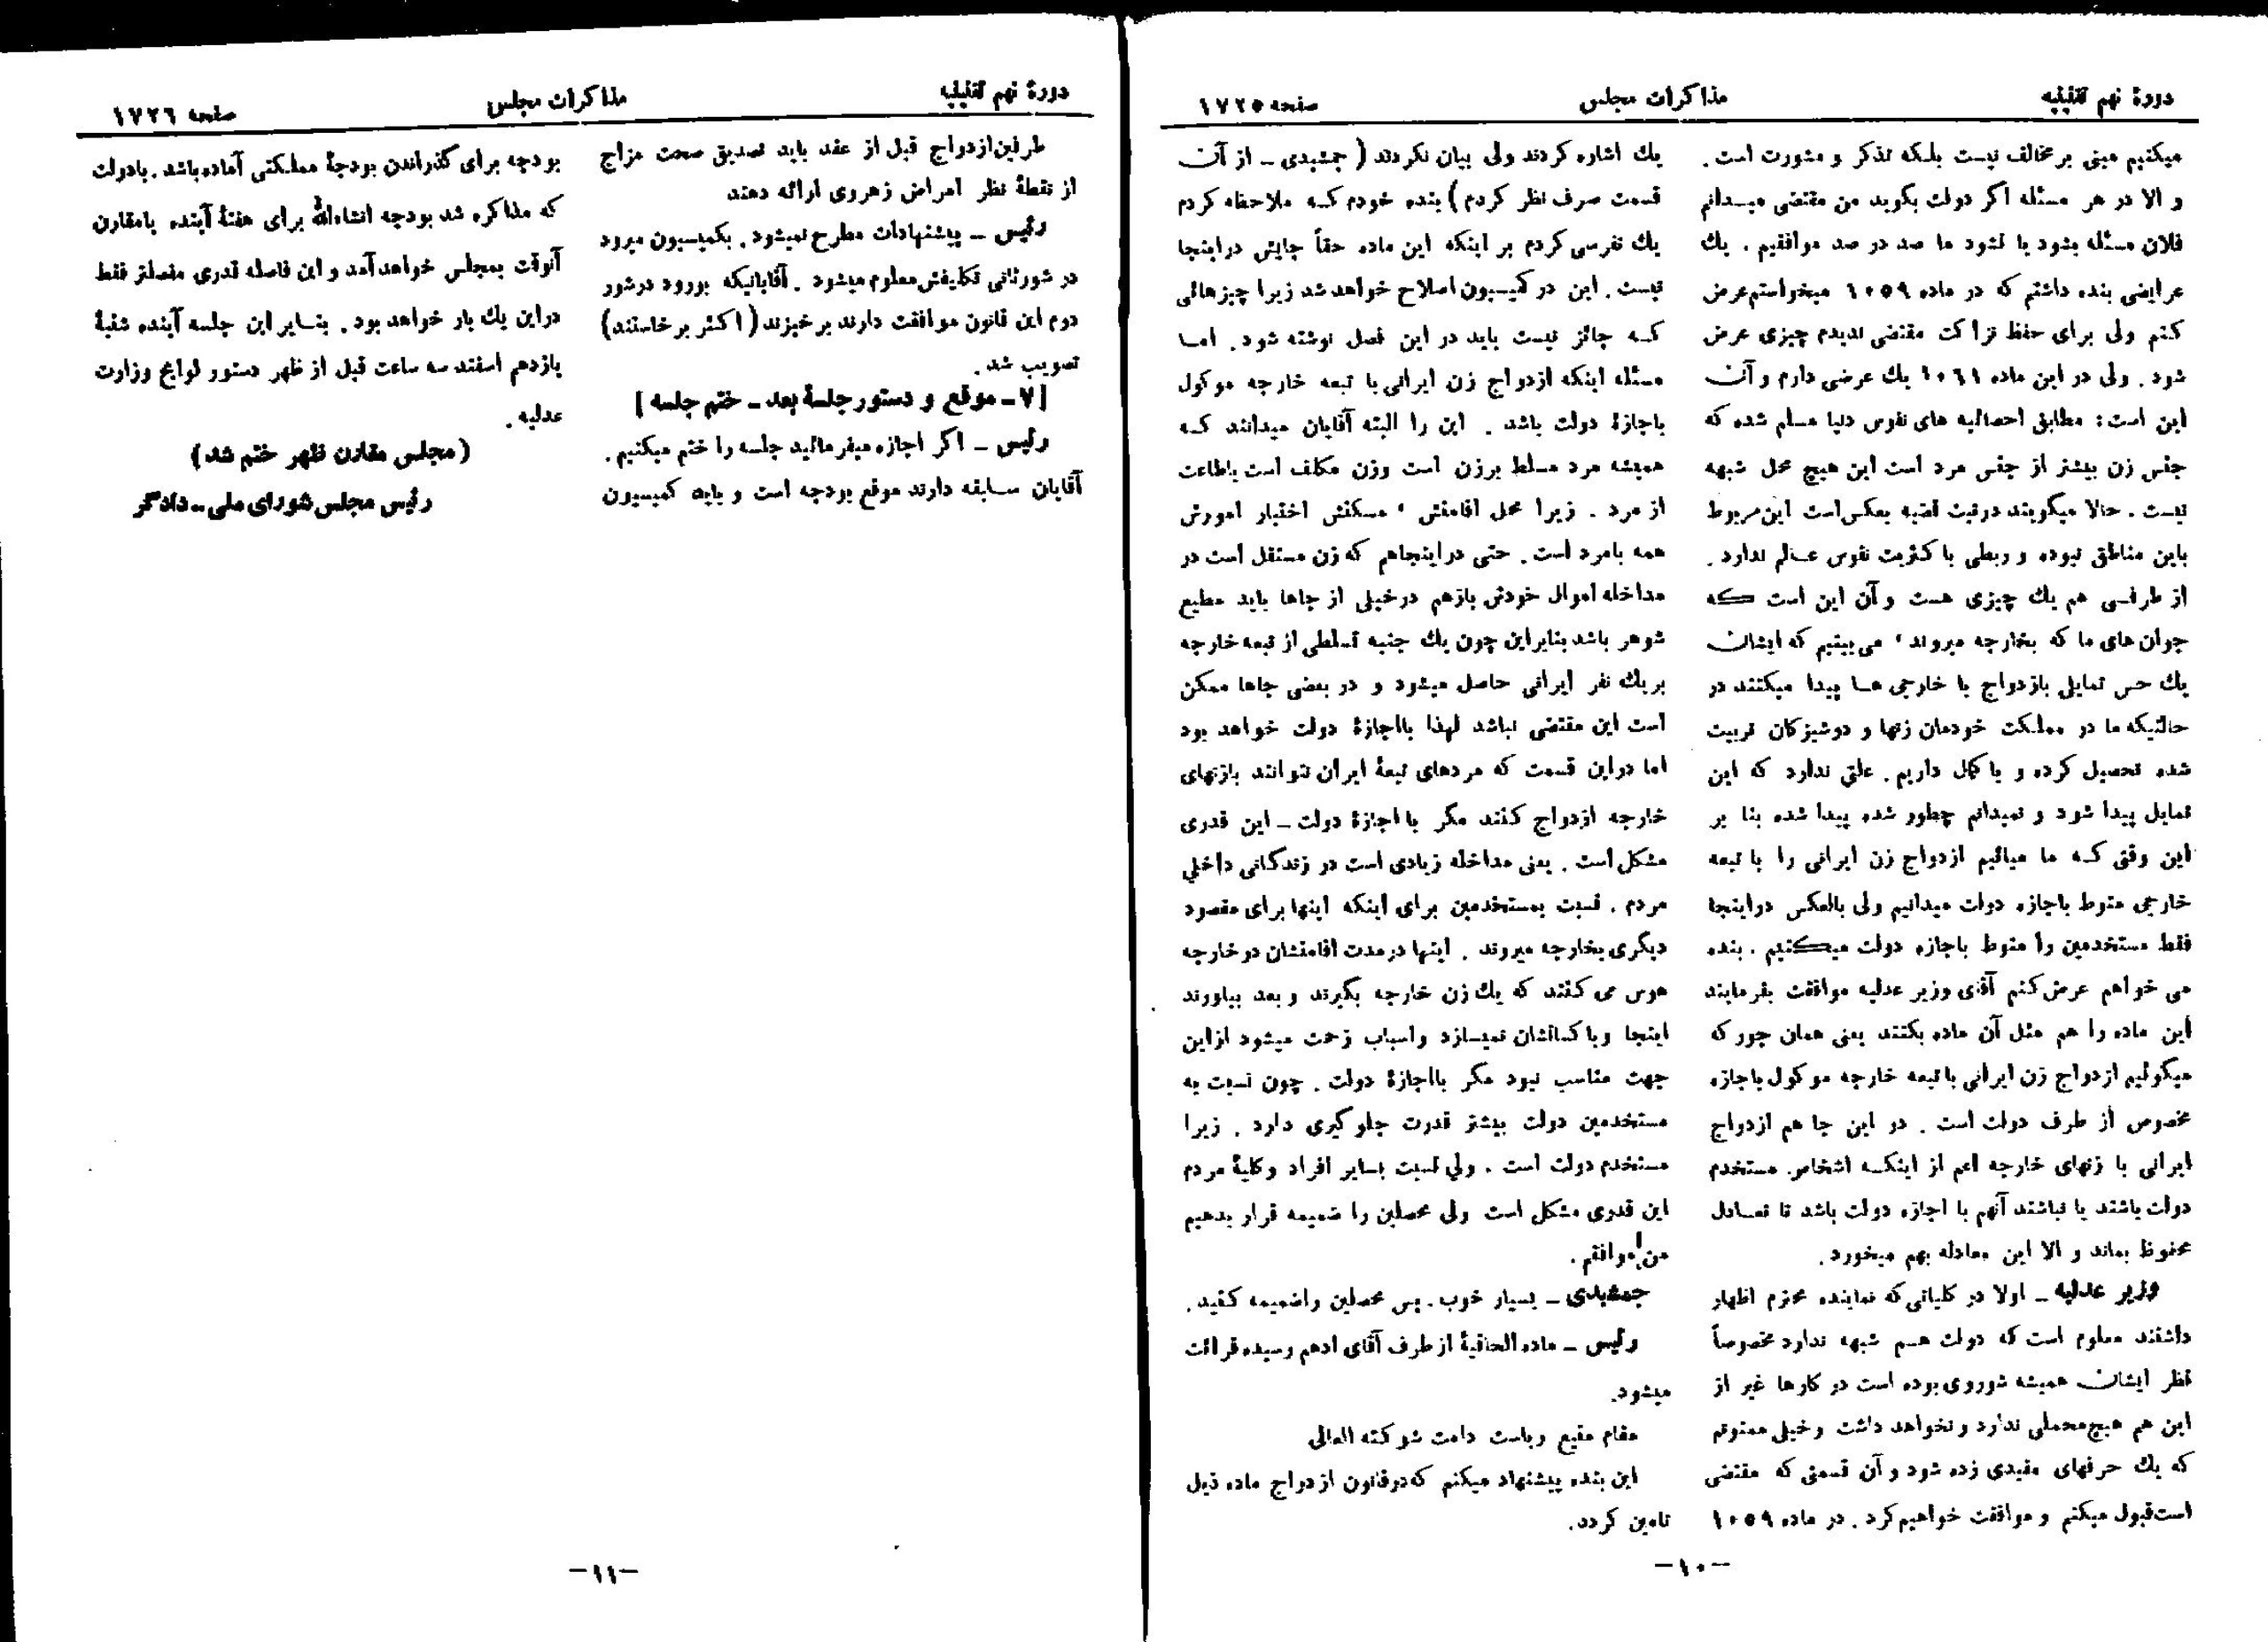 دورهٔ نهم تقنینیه
مذاکرات مجلس
صفحه ۱۷۲۵
میکنیم مبنی بر مخالف نیست بلکه تذکر و مشورت است.
و الا در هر مسئله اگر دولت بگوید من مقتضی میدانم
فلان مسئله بشود یا نشود ما صد در صد موافقیم . یك
عرایضی بنده داشتم که در ماده ۱۰۵۹ میخواستم عرض
کنم ولی برای حفظ نزاکت مقتضی ندیدم چیزی عرض
شود . ولی در این ماده ۱۰۶۱ یك عرضی دارم و آن
این است : مطابق احصائیه های نفوس دنیا مسلم شده که
جنس زن بیشتر از جنس مرد است این هیچ محل شبهه
نیست . حالا میگویند در تبت قضیه بعکس است این مربوط
باین مناطق نبوده و ربطی با کثریت نفوس عالم ندارد .
از طرفی هم یك چیزی هست و آن این است که
جوان های ما که بخارجه میروند ، می بینیم که ایشان
یك حس تمایل بازدواج با خارجی ها پیدا میکنند در
حالتیکه ما در مملکت خودمان زنها و دوشیزکان تربیت
شده تحصیل کرده و با کمال داریم . علتی ندارد که این
تمایل پیدا شود و نمیدانم چطور شده پیدا شده بنا بر
این وقتی که ما میائیم ازدواج زن ایرانی را با تبعه
خارجی منوط باجازه دولت میدانیم ولی بالعکس در اینجا
فقط مستخدمین را منوط باجازه دولت میکنیم . بنده
می خواهم عرض کنم آقای وزیر عدلیه موافقت بفرمایند
این ماده را هم مثل آن ماده بکنند یعنی همان جور که
میگوئیم ازدواج زن ایرانی با تبعه خارجه موکول باجازه
مخصوص از طرف دولت است . در این جا هم ازدواج
ایرانی با زنهای خارجه اعم از اینکه اشخاص مستخدم
دولت باشند یا نباشند آنهم با اجازه دولت باشد تا تعادل
محفوظ بماند و الا این معادله بهم میخورد .
وزیر عدلیه – اولا در کلیاتی که نماینده محترم اظهار
داشتند معلوم است که دولت هم شبهه ندارد مخصوصاً
نظر ایشان همیشه شوروی بوده است در کارها غیر از
این هم هیچ محملی ندارد و نخواهد داشت و خیلی ممنونم
که یك حرفهای مفیدی زده شود و آن قسمتی که مقتضی
است قبول میکنم و موافقت خواهیم کرد . در ماده ۱۰۵۹
یك اشاره کردند ولی بیان نکردند ( جمشیدی – از آن
قسمت صرف نظر کردم ) بنده خودم که ملاحظه کردم
یك تفرسی کردم بر اینکه این ماده حقاً جایش در اینجا
نیست . این در کمیسیون اصلاح خواهد شد زیرا چیزهائی
که جائز نیست باید در این فصل نوشته شود . اما
مسئله اینکه ازدواج زن ایرانی با تبعه خارجه موکول
باجازهٔ دولت باشد . این را البته آقایان میدانند که
همیشه مرد مسلط برزن است وزن مکلف است باطاعت
از مرد . زیرا محل اقامتش ، مسکنش اختیار امورش
همه بامرد است . حتی در اینجاهم که زن مستقل است در
مداخله اموال خودش بازهم درخیلی از جاها باید مطیع
شوهر باشد بنابراین چون یك جنبه تسلطی از تبعه خارجه
بر یك نفر ایرانی حاصل میشود و در بعضی جاها ممکن
است این مقتضی نباشد لهذا بااجازهٔ دولت خواهد بود
اما دراین قسمت که مردهای تبعهٔ ایران نتوانند بازنهای
خارجه ازدواج کنند مگر با اجازهٔ دولت – این قدری
مشکل است . یعنی مداخله زیادی است در زندگانی داخلی
مردم . نسبت بمستخدمین برای اینکه اینها برای مقصود
دیگری بخارجه میروند . اینها درمدت اقامتشان در خارجه
هوس می کنند که یك زن خارجه بگیرند و بعد بیاورند
اینجا وبا کسانشان نمیسازد واسباب زحمت میشود ازاین
جهت مناسب نبود مگر بااجازهٔ دولت . چون نسبت به
مستخدمین دولت بیشتر قدرت جلوگیری دارد . زیرا
مستخدم دولت است . ولی نسبت بسایر افراد وکلیهٔ مردم
این قدری مشکل است ولی محصلین را ضمیمه قرار بدهیم
من موافقم .
جمشیدی – بسیار خوب . پس محصلین راضمیمه کنید .
رئیس – ماده الحاقیهٔ از طرف آقای ادهم رسیده قرائت
میشود.
مقام منیع ریاست دامت شوکته العالی
این بنده پیشنهاد میکنم که درقانون ازدواج ماده ذیل
تامین گردد.
–۱۰–
دورهٔ نهم تقنینیه
مذاکرات مجلس
صفحه ۱۷۲۶
طرفین ازدواج قبل از عقد باید تصدیق صحت مزاج
از نقطهٔ نظر امراض زهروی ارائه دهند
رئیس – پیشنهادات مطرح نمیشود . بکمیسیون میرود
در شورثانی تکلیفش معلوم میشود . آقایانیکه بورود درشور
دوم این قانون موافقت دارند برخیزند ( اکثر برخاستند )
تصویب شد .
[ ۷ – موقع و دستور جلسهٔ بعد – ختم جلسه ]
رئیس – اگر اجازه میفرمائید جلسه را ختم میکنیم .
آقایان سابقه دارند موقع بودجه است و باید کمیسیون
بودجه برای گذراندن بودجهٔ مملکتی آماده باشد . بادولت
که مذاکره شد بودجه انشاءالله برای هفتهٔ آینده یامقارن
آنوقت بمجلس خواهد آمد و این فاصله قدری مفصلتر فقط
دراین یك بار خواهد بود . بنابر این جلسه آینده شنبهٔ
یازدهم اسفند سه ساعت قبل از ظهر دستور لوایح وزارت
عدلیه .
( مجلس مقارن ظهر ختم شد )
رئیس مجلس شورای ملی – دادگر
–۱۱–